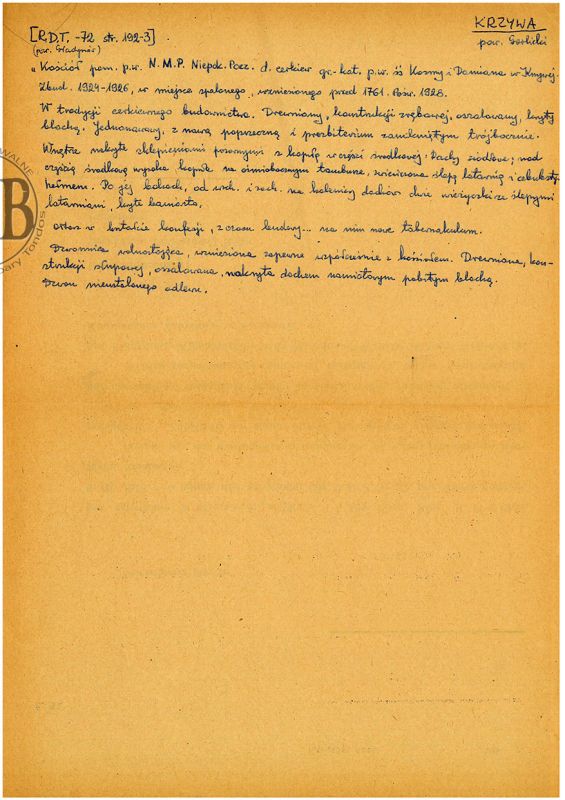 [R.D.T. -72 str. 192-3]
(pow. Gładyszów)
KRZYWA
pow. Gorlicki
„Kościół pom. p.w. N.M.P. Niepok. Pocz. d. cerkiew gr-kat. p.w. śś Kosmy i Damiana w Krzywej.
Zbud. 1924-1926, w miejsce spalonego, wzniesionego przed 1761. Pośw. 1928.
W tradycji cerkiewnego budownictwa. Drewniany, konstrukcji zrębowej, oszalowany, kryty
blachą. Jednonawowy, z nawą poprzeczną i prezbiterium zamkniętym trójbocznie.
Wnętrze nakryte sklepieniami pozornymi z kopułą w części środkowej. Dachy siodłowe; nad
częścią środkową wysoka kopuła na ośmiobocznym tamburze, zwieńczona ślepą latarnią i cebulastym
hełmem. Po jej bokach, od wsch. i zach. na kalenicy dachów dwie wieżyczki ze ślepymi
latarniami, kryte
Ołtarz w kształcie konfesji, z czasu budowy... na nim nowe tabernakulum.
Dzwonnica wolnostojąca, wzniesiona zapewne współcześnie z kościołem. Drewniana, kon-
strukcji słupowej, oszalowana, nakryta dachem namiotowym pobitym blachą.
Dzwon nieustalonego odlewu.
WALNE
B
bary Tondos